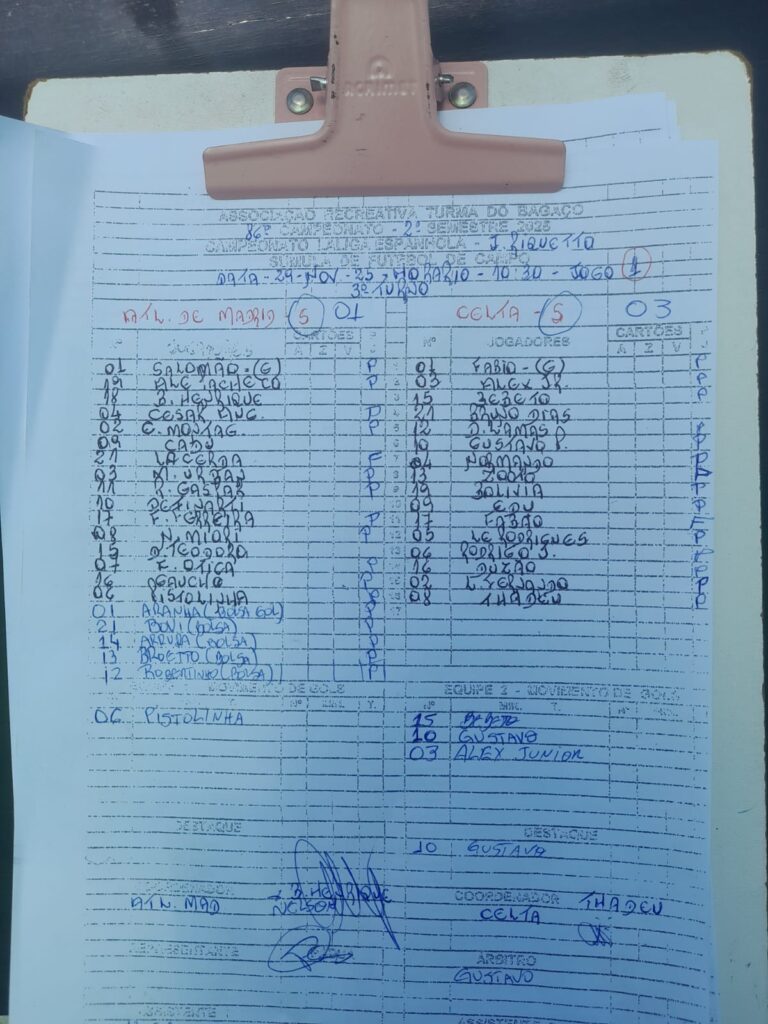 ACRIMET
ASSOCIAÇÃO RECREATIVA TURMA DO BAGAÇO
86º CAMPEONATO - 2º SEMESTRE 2025
CAMPEONATO LALIGA ESPANHOLA - J. RIQUETTO
SÚMULA DE FUTEBOL DE CAMPO
DATA - 29 - NOV - 25 - HORÁRIO - 10:30 - JOGO 1
3º TURNO
ATL. DE MADRID - 5 01 CELTA - 5 03
CARTÕES CARTÕES
A Z V Nº JOGADORES A Z V
01 SALOMÃO - (G) P 01 FABIO - (G) P
19 ALE PACHECO P 03 ALEX JR. P
18 B. HENRIQUE 15 BEBETO P
04 CESAR P 21 BRUNO DIAS
02 E. MONTAG. P 12 D. LAMAS P. P
09 CADU 10 GUSTAVO P. P
21 LACERDA F 04 NORMANDO P
03 P 13 P
11 R. GASPAR P 19 BOLIVIA P
10 DEZINARTI 09 EDU P
17 F. FERREIRA P 17 FABÃO
08 N. MIORI P 05 LE RODRIGUES
15 D. TEODORO 06 RODRIGO J.
07 F. OTICA P 16
16 GAUCHO P 02 L. FERNANDO
06 PISTOLINHA 08 THADEU
01 ARANHA (BOLSA GOL)
21 BOVI (BOLSA)
14 ARRUDA (BOLSA)
13 BROETTO (BOLSA)
12 ROBERTINHO (BOLSA)
MOVIMENTO DE GOLS EQUIPE 2 - MOVIMENTO DE GOLS
Nº MIN. T. Nº MIN. T. Nº MIN.
06 PISTOLINHA 15 BEBETO
10 GUSTAVO
03 ALEX JUNIOR
DESTAQUE DESTAQUE
10 GUSTAVO
COORDENADOR B. HENRIQUE COORDENADOR THADEU
ATL. MAD NELSON CELTA
REPRESENTANTE ÁRBITRO
GUSTAVO
ASSISTENTE